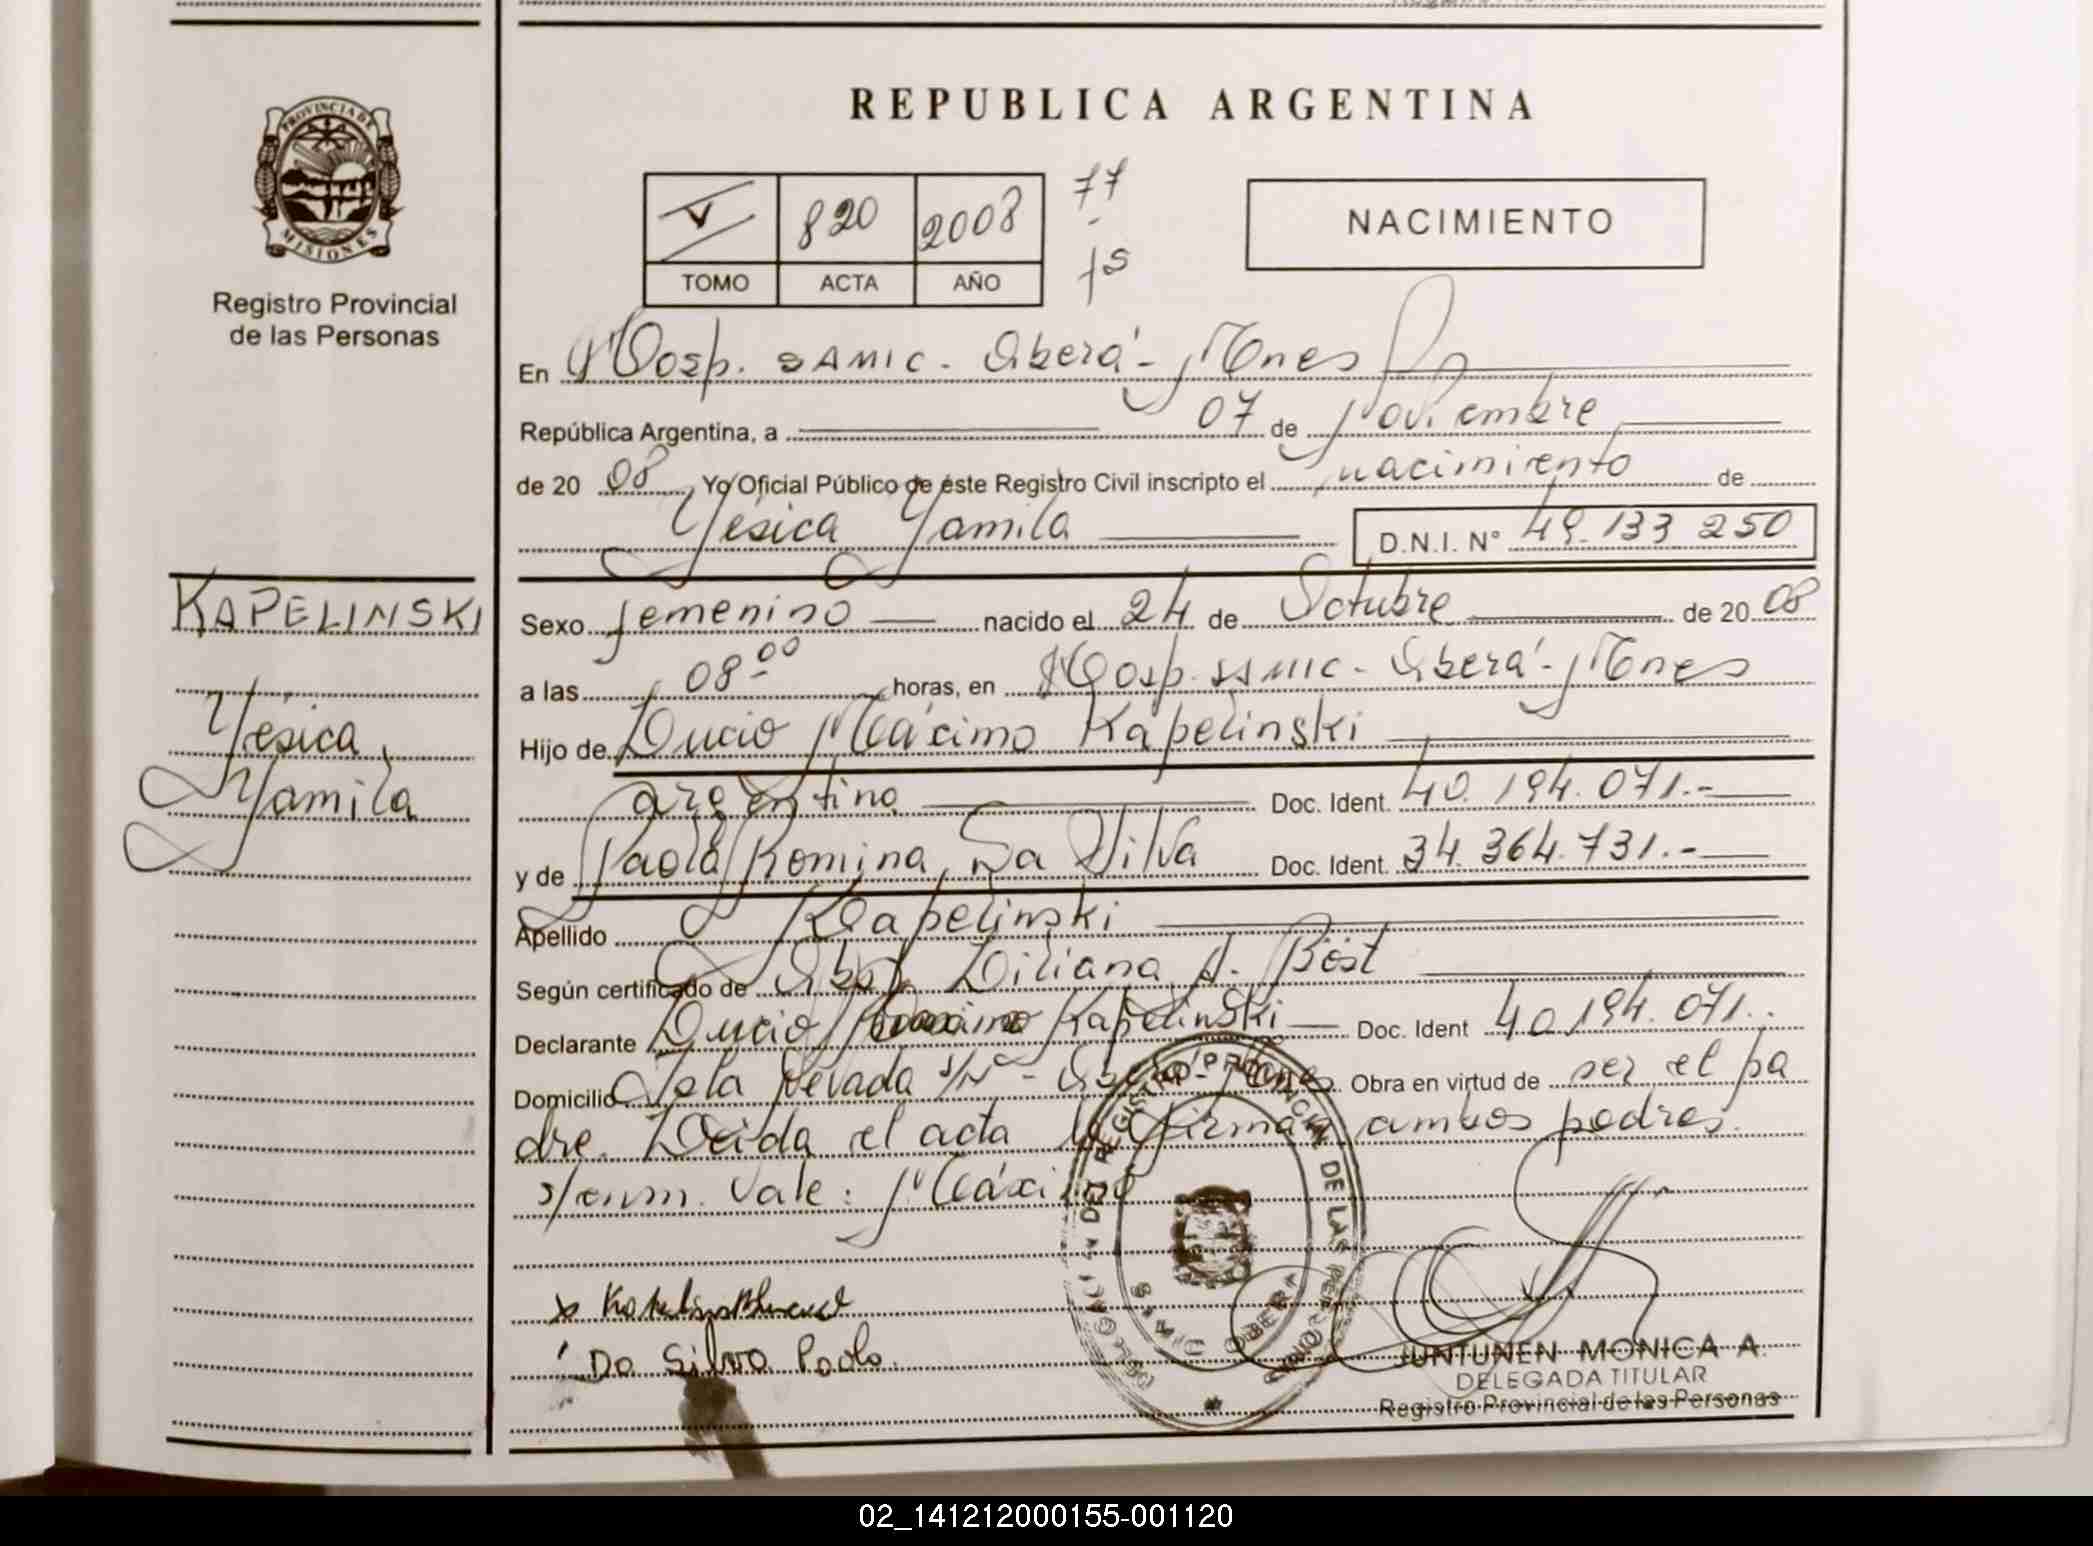 PROVINCIA DE
MISIONES
Registro Provincial
de las Personas
KAPELINSKI
Yésica
Yamila
REPUBLICA ARGENTINA
V 820 2008 77
TOMO ACTA AÑO
NACIMIENTO
En Hosp. SAMIC - Oberá - Mnes
República Argentina, a 07 de Noviembre
de 20 08 Yo Oficial Público de éste Registro Civil inscripto el nacimiento de
Yésica Yamila D.N.I. N° 49.133 250
Sexo femenino nacido el 24 de Octubre de 20 08
a las 08 00 horas, en Hosp. SAMIC - Oberá - Mnes
Hijo de Lucio Máximo Kapelinski
argentino Doc. Ident. 40.194.071.-
y de Paola Romina Da Silva Doc. Ident. 34.364.731.-
Apellido Kapelinski
Según certificado de Obst. Liliana A. Böst
Declarante Lucio Kapelinski Doc. Ident 40.194.071.
Domicilio Nevada s/Nº - Oberá - Mnes. Obra en virtud de ser el pa
dre. Leida el acta la firman ambos padres.
s/enm. Vale: Máximo
Da Silva Paola.
REGISTRO PROVINCIAL DE LAS PERSONAS
SAMIC OBERA
JUNTUNEN MONICA A.
DELEGADA TITULAR
Registro Provincial de las Personas
02_141212000155-001120